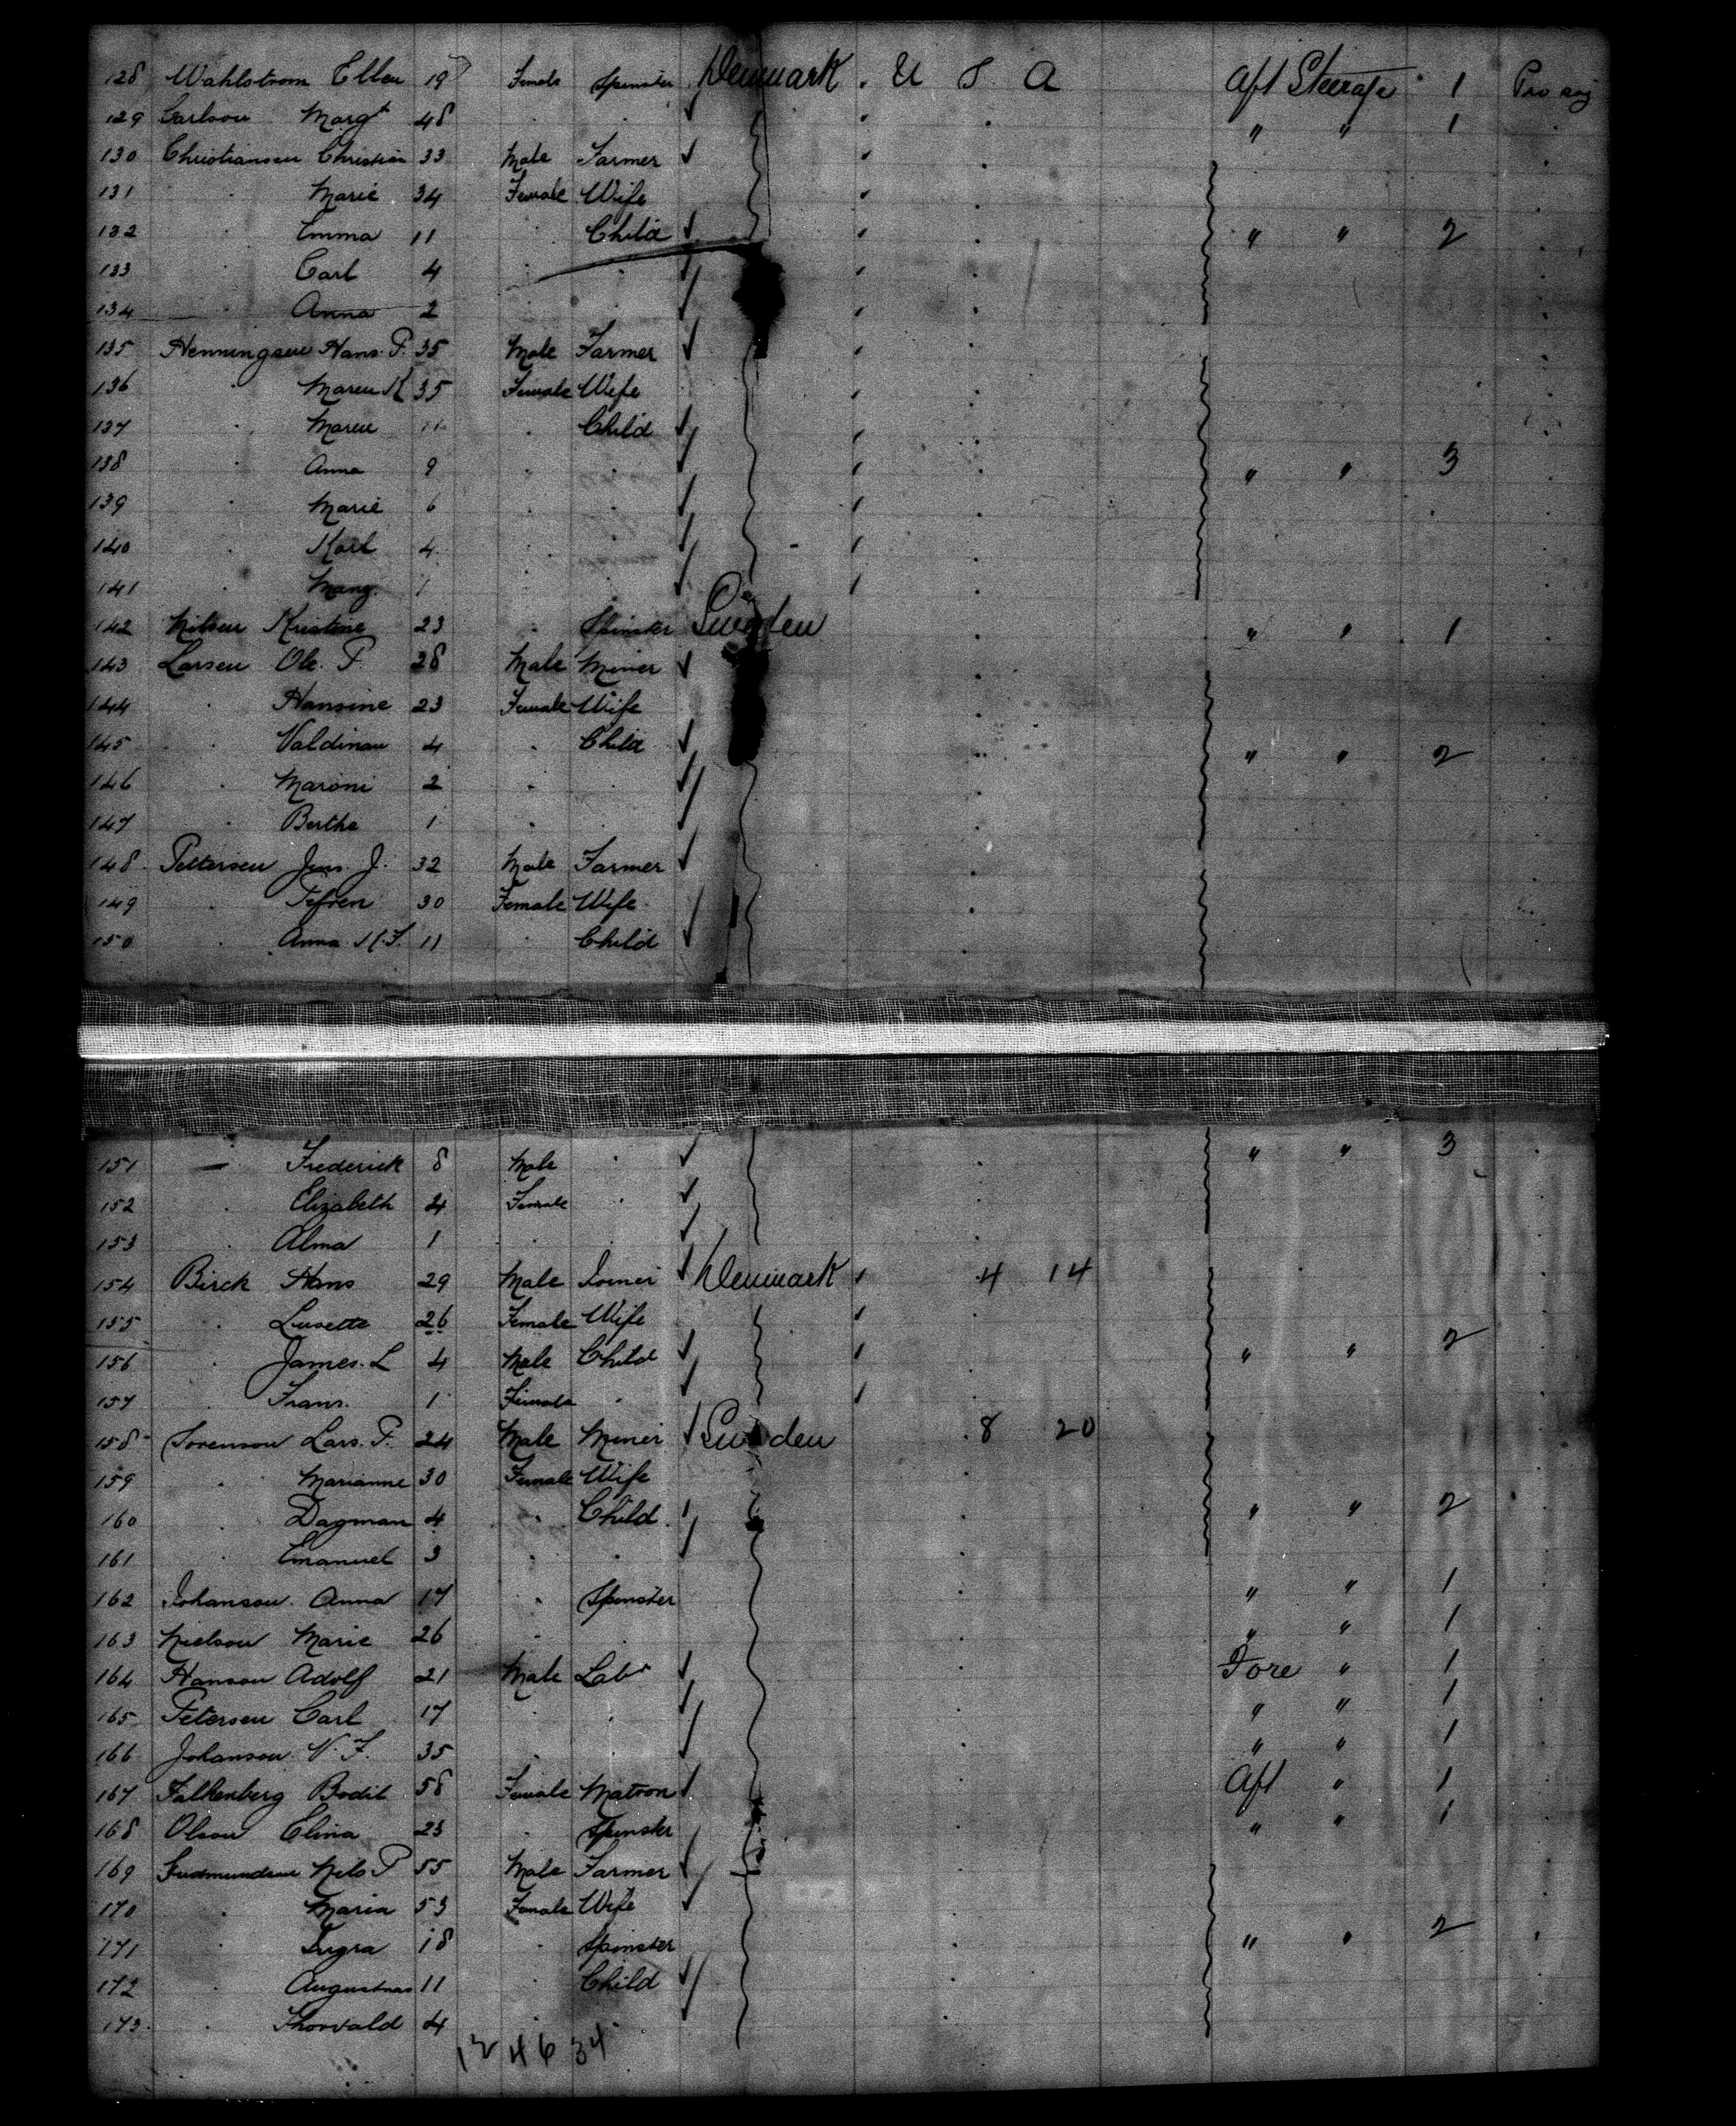 128 Wahlstrom Ellen 19 Female Spinster Denmark U S A Aft Steerage 1
129 Carlson Margt 48 " " 1
130 Christiansen Christian 33 Male Farmer
131 Marie 34 Female Wife
132 Emma 11 Child " " 2
133 Carl 4
134 Anna 2
135 Henningsen Hans. P. 35 Male Farmer
136 Maren K 35 Female Wife
137 Maren 11 Child
138 Anna 9 " " 3
139 Marie 6
140 Karl 4
141 1
142 Nilsen Kristine 23 Spinster Sweden " " 1
143 Larsen Ole. P. 28 Male Miner
144 Hansine 23 Female Wife
145 Valdinan 4 Child " " 2
146 Maroni 2
147 Berthe 1
148 Pettersen Jens J. 32 Male Farmer
149 30 Female Wife
150 Anna 11 Child
151 Frederick 8 Male " " 3
152 Elizabeth 4 Female
153 Alma 1
154 Birck Hans 29 Male Joiner Denmark 4 14
155 Lusette 26 Female Wife
156 James. L 4 Male Child " " 2
157 Frans. 1 Female
158 Sorenson Lars. P. 24 Male Miner Sweden 8 20
159 Marianne 30 Female Wife
160 Dagman 4 Child " " 2
161 Emanuel 3
162 Johanson Anna 17 Spinster " " 1
163 Nielson Marie 26 " " 1
164 Hanson Adolf 21 Male Labr Fore " 1
165 Petersen Carl 17 " " 1
166 Johanson N. F. 35 " " 1
167 Falkenberg Bodil 58 Female Matron Aft " 1
168 Olson Elina 23 Spinster " " 1
169 Gudmundsen Nils P 55 Male Farmer
170 Maria 53 Female Wife
171 Ingra 18 Spinster " " 2
172 11 Child
173 Thorvald 4
12 46 34